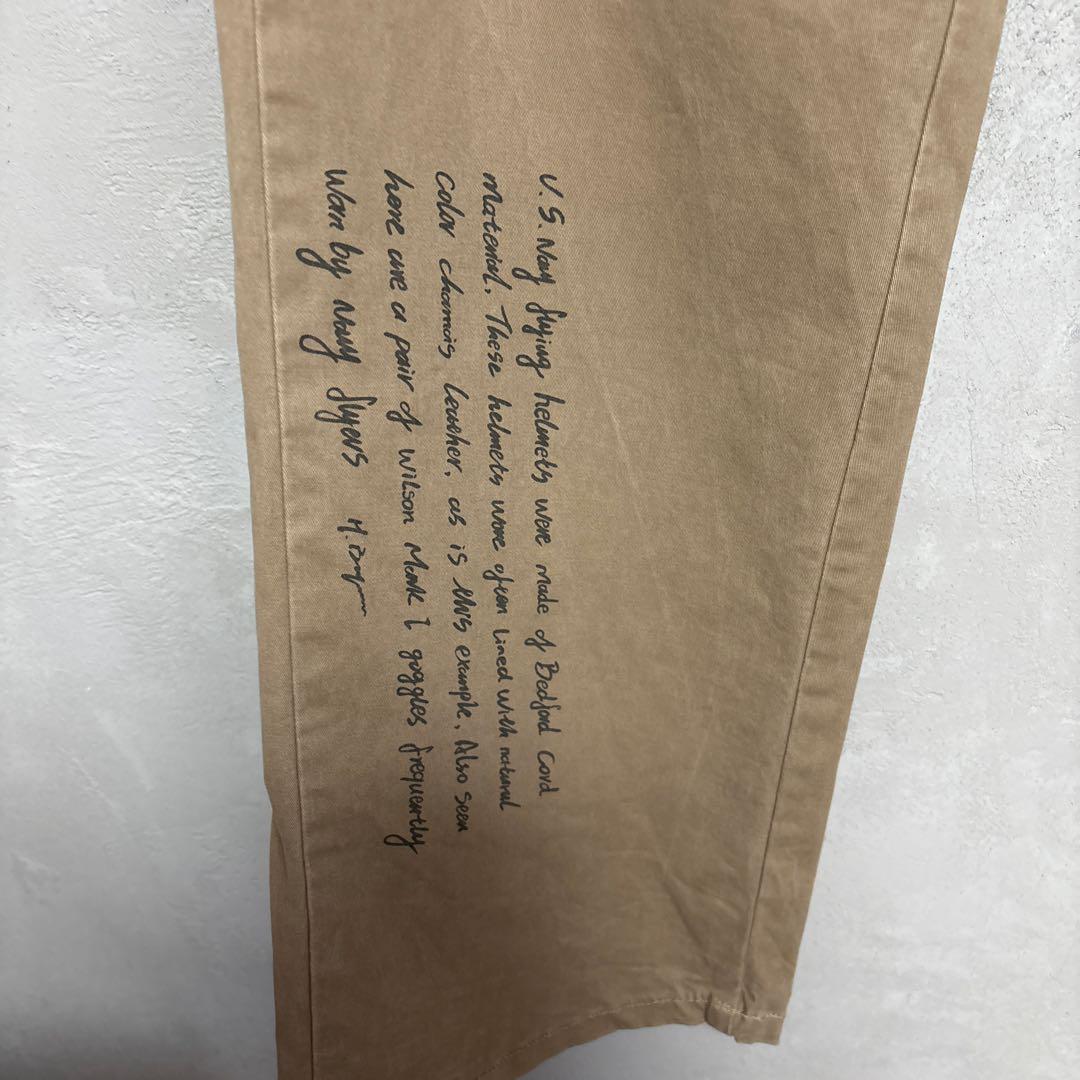 U.S. Navy flying helmets were made of Bedford Cord
material. These helmets were often lined with natural
color chamois leather, as is this example. Also seen
here are a pair of Wilson Mark I goggles frequently
worn by Navy flyers